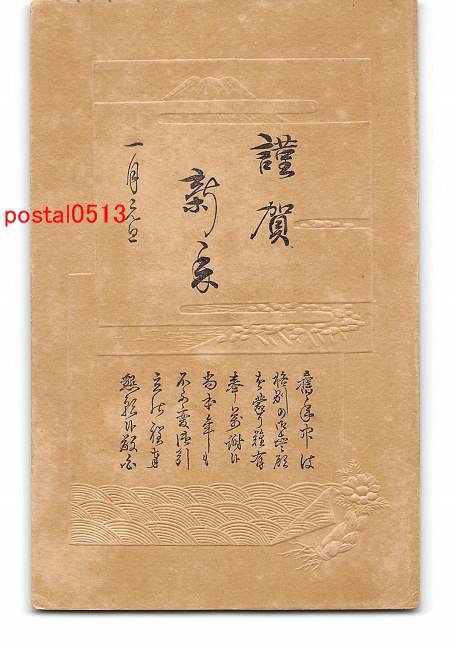 謹賀
新年
一月元旦
舊年中は
格別の御愛顧
を蒙り難有
奉萬謝候
尚本年も
不相変御引
立の程奉
懇願候敬白
postal0513